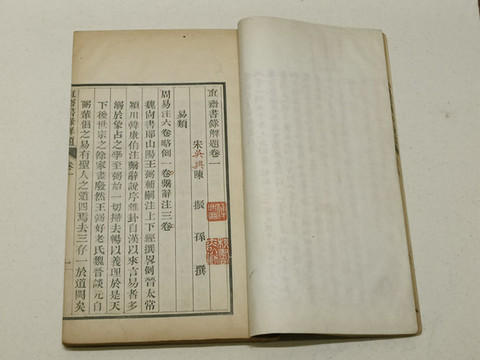 直齋書錄解題卷一
宋吳興陳振孫撰
易類
周易注六卷略例一卷繫辭注三卷
魏尚書郎山陽王弼輔嗣注上下經撰畧例晉太常
潁川韓康伯注繫辭說序雜卦自漢以來言易者多
溺於象占之學至弼始一切掃去暢以義理於是天
下後世宗之餘家盡廢然王弼好老氏魏晉談元自
弼輩倡之易有聖人之道四焉去三存一於道闕矣
直齋書錄解題 卷一